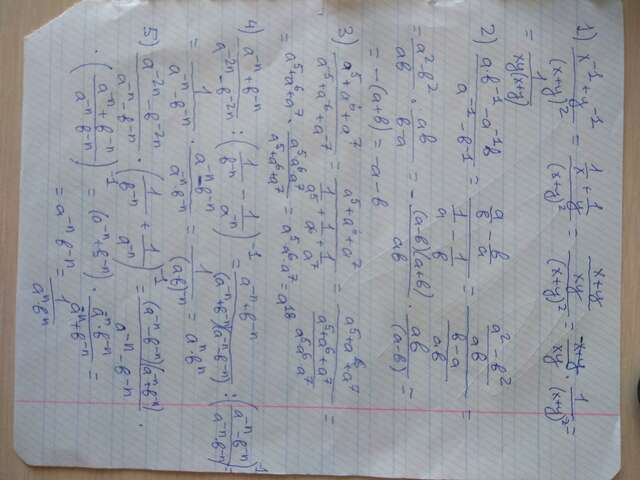 1) (x^-1 + y^-1)/(x+y)^2 = (1/x + 1/y)/(x+y)^2 = ((x+y)/xy)/(x+y)^2 = (x+y)/xy · 1/(x+y)^2 =
= 1/(xy(x+y))
2) (ab^-1 - a^-1b)/(a^-1 - b^-1) = (a/b - b/a)/(1/a - 1/b) = ((a^2-b^2)/ab)/((b-a)/ab) =
= (a^2-b^2)/ab : (b-a)/ab = -((a-b)(a+b))/ab · ab/(a-b) =
= -(a+b) = -a-b
3) (a^5+a^6+a^7)/(a^-5+a^-6+a^-7) = (a^5+a^6+a^7)/(1/a^5+1/a^6+1/a^7) = (a^5+a^6+a^7)/((a^5+a^6+a^7)/(a^5a^6a^7)) =
= a^5+a^6+a^7 · (a^5a^6a^7)/(a^5+a^6+a^7) = a^5·a^6·a^7 = a^18
4) (a^-n+b^-n)/(a^-2n-b^-2n) : (1/b^-n - 1/a^-n)^-1 = (a^-n+b^-n)/((a^-n+b^-n)(a^-n-b^-n)) : ((a^-n-b^-n)/(a^-n·b^-n))^-1 =
= 1/(a^-n-b^-n) · (a^-n-b^-n)/(a^-n·b^-n) = 1/(ab)^-n = a^n·b^n
5) (a^-2n-b^-2n)/(a^-n-b^-n) · (1/b^-n + 1/a^-n)^-1 = ((a^-n-b^-n)(a^-n+b^-n))/(a^-n-b^-n) ·
· ((a^-n+b^-n)/(a^-n·b^-n))^-1 = (a^-n+b^-n) · (a^-n·b^-n)/(a^-n+b^-n) =
= a^-n·b^-n = 1/(a^n·b^n)